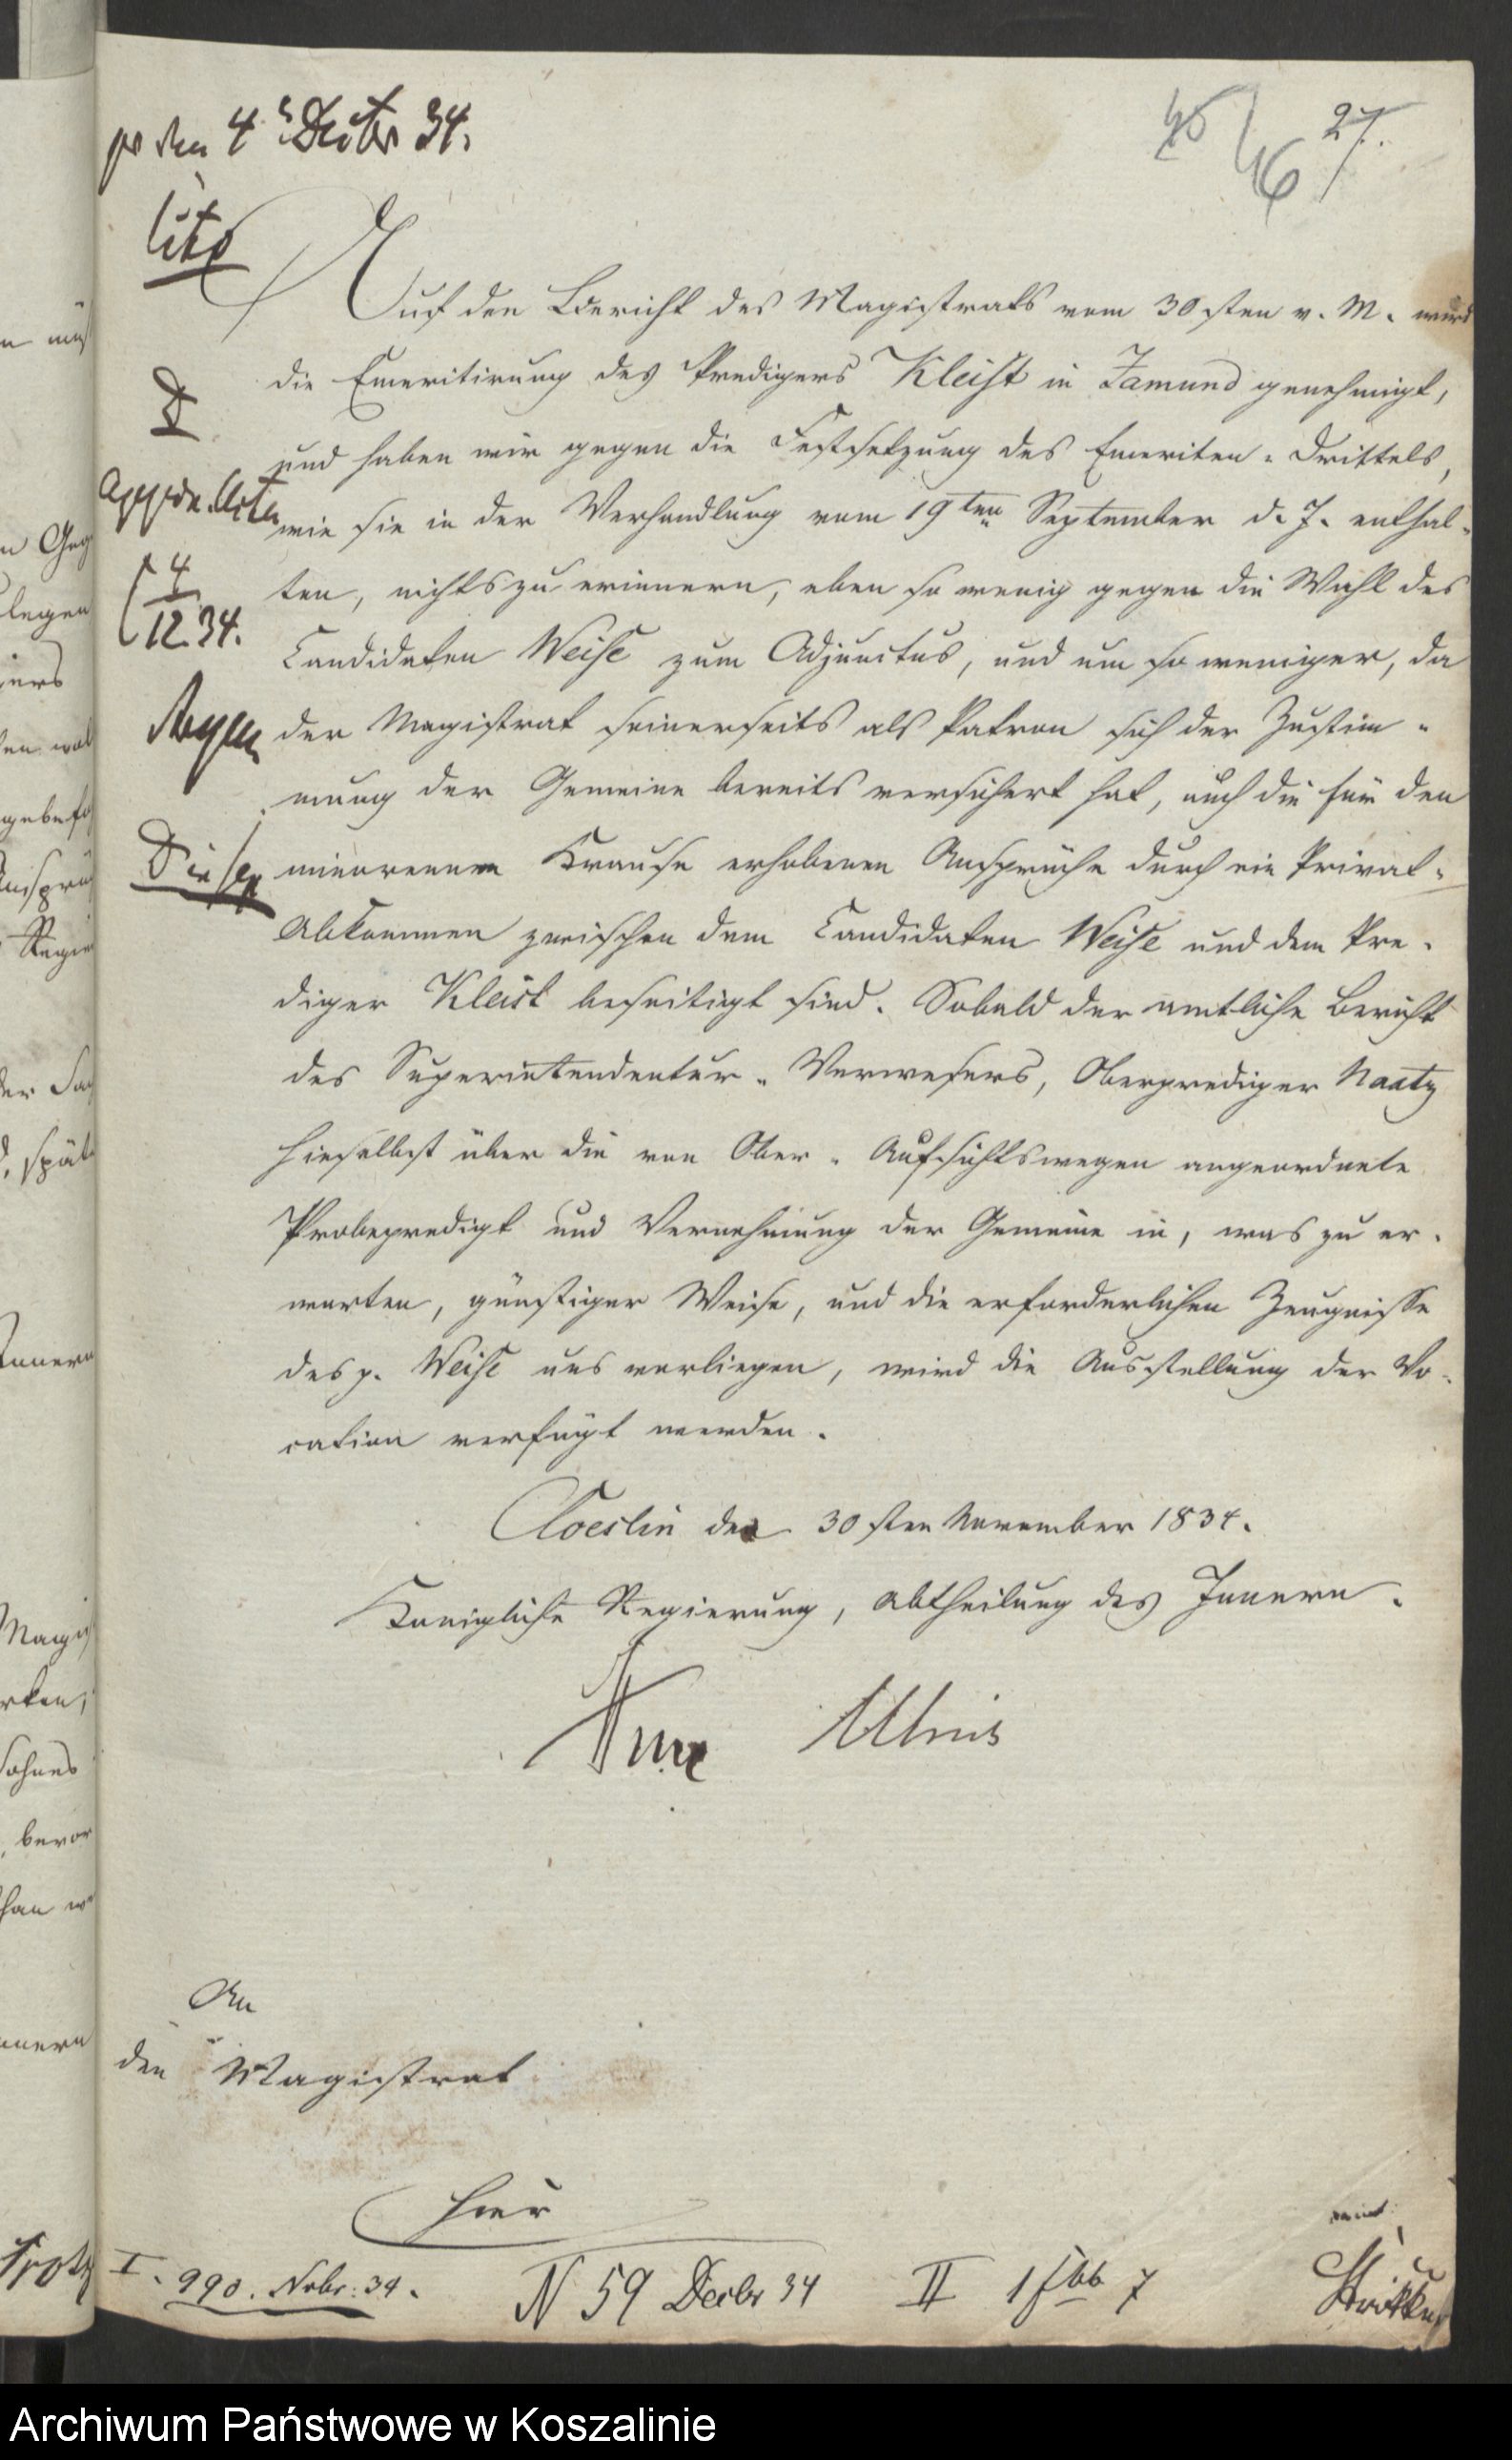 pr den 4 Decbr 34.
cito
45
46
27.
Auf den Bericht des Magistrats vom 30sten v. M. wird
die Emeritirung des Predigers Kleist in Jamund genehmigt,
und haben wir gegen die Festsetzung des Emeriten-Drittels,
wie sie in der Verhandlung vom 19ten September d. J. enthal-
ten, nichts zu erinnern, eben so wenig gegen die Wahl des
Candidaten Weise zum Adjunctus, und um so weniger, da
der Magistrat seinerseits als Patron sich der Zustim-
mung der Gemeine bereits versichert hat, auch die für den
minorennen Krause erhobenen Ansprüche durch ein Privat-
Abkommen zwischen dem Candidaten Weise und dem Pre-
diger Kleist beseitigt sind. Sobald der amtliche Bericht
des Superintendentur-Verwesers, Oberprediger Naatz
hieselbst über die von Ober-Aufsichtswegen angeordnete
Probepredigt und Vernehmung der Gemeine in, was zu er-
warten, günstiger Weise, und die erforderlichen Zeugnisse
des p. Weise uns vorliegen, wird die Ausstellung der Vo-
cation verfügt werden.
Coeslin den 30sten November 1834.
Königliche Regierung, Abtheilung des Innern.
4
12 34.
An
den Magistrat
hier
I. 990. Nobr. 34.
N 59 Decbr 34
II
7
Archiwum Państwowe w Koszalinie